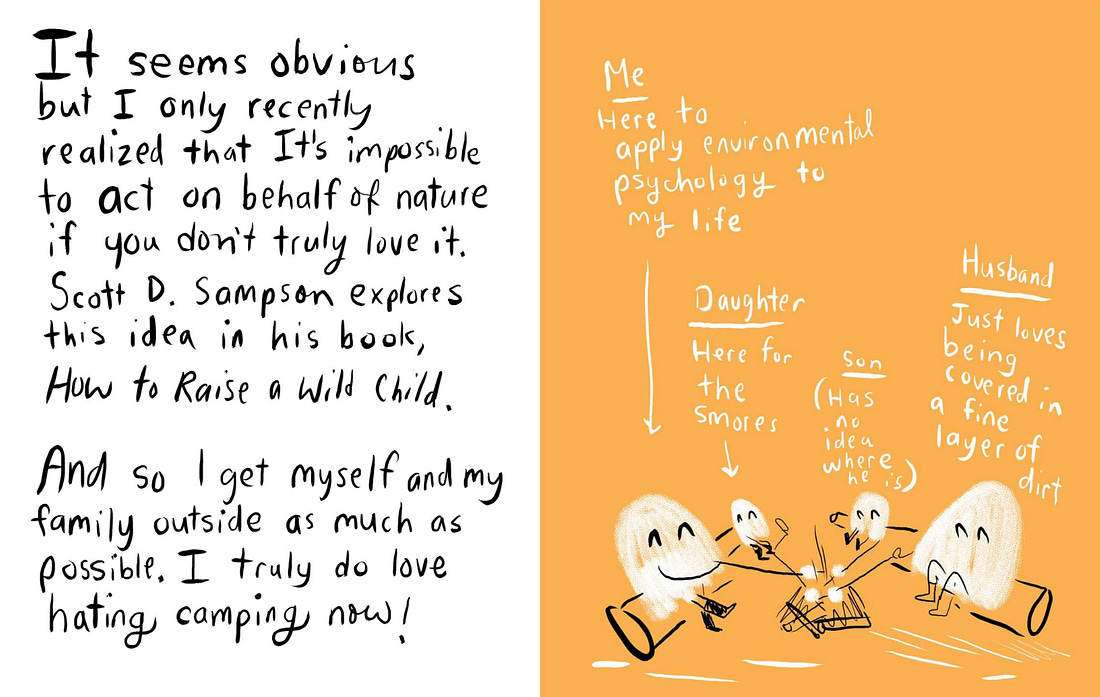 It seems obvious
but I only recently
realized that It's impossible
to act on behalf of nature
if you don't truly love it.
Scott D. Sampson explores
this idea in his book,
How to Raise a Wild Child.
And so I get myself and my
family outside as much as
possible. I truly do love
hating camping now!
Me
Here to
apply environmental
psychology to
my life
Daughter
Here for
the
smores
Son
(Has
no
idea
where
he is)
Husband
Just loves
being
covered in
a fine
layer of
dirt